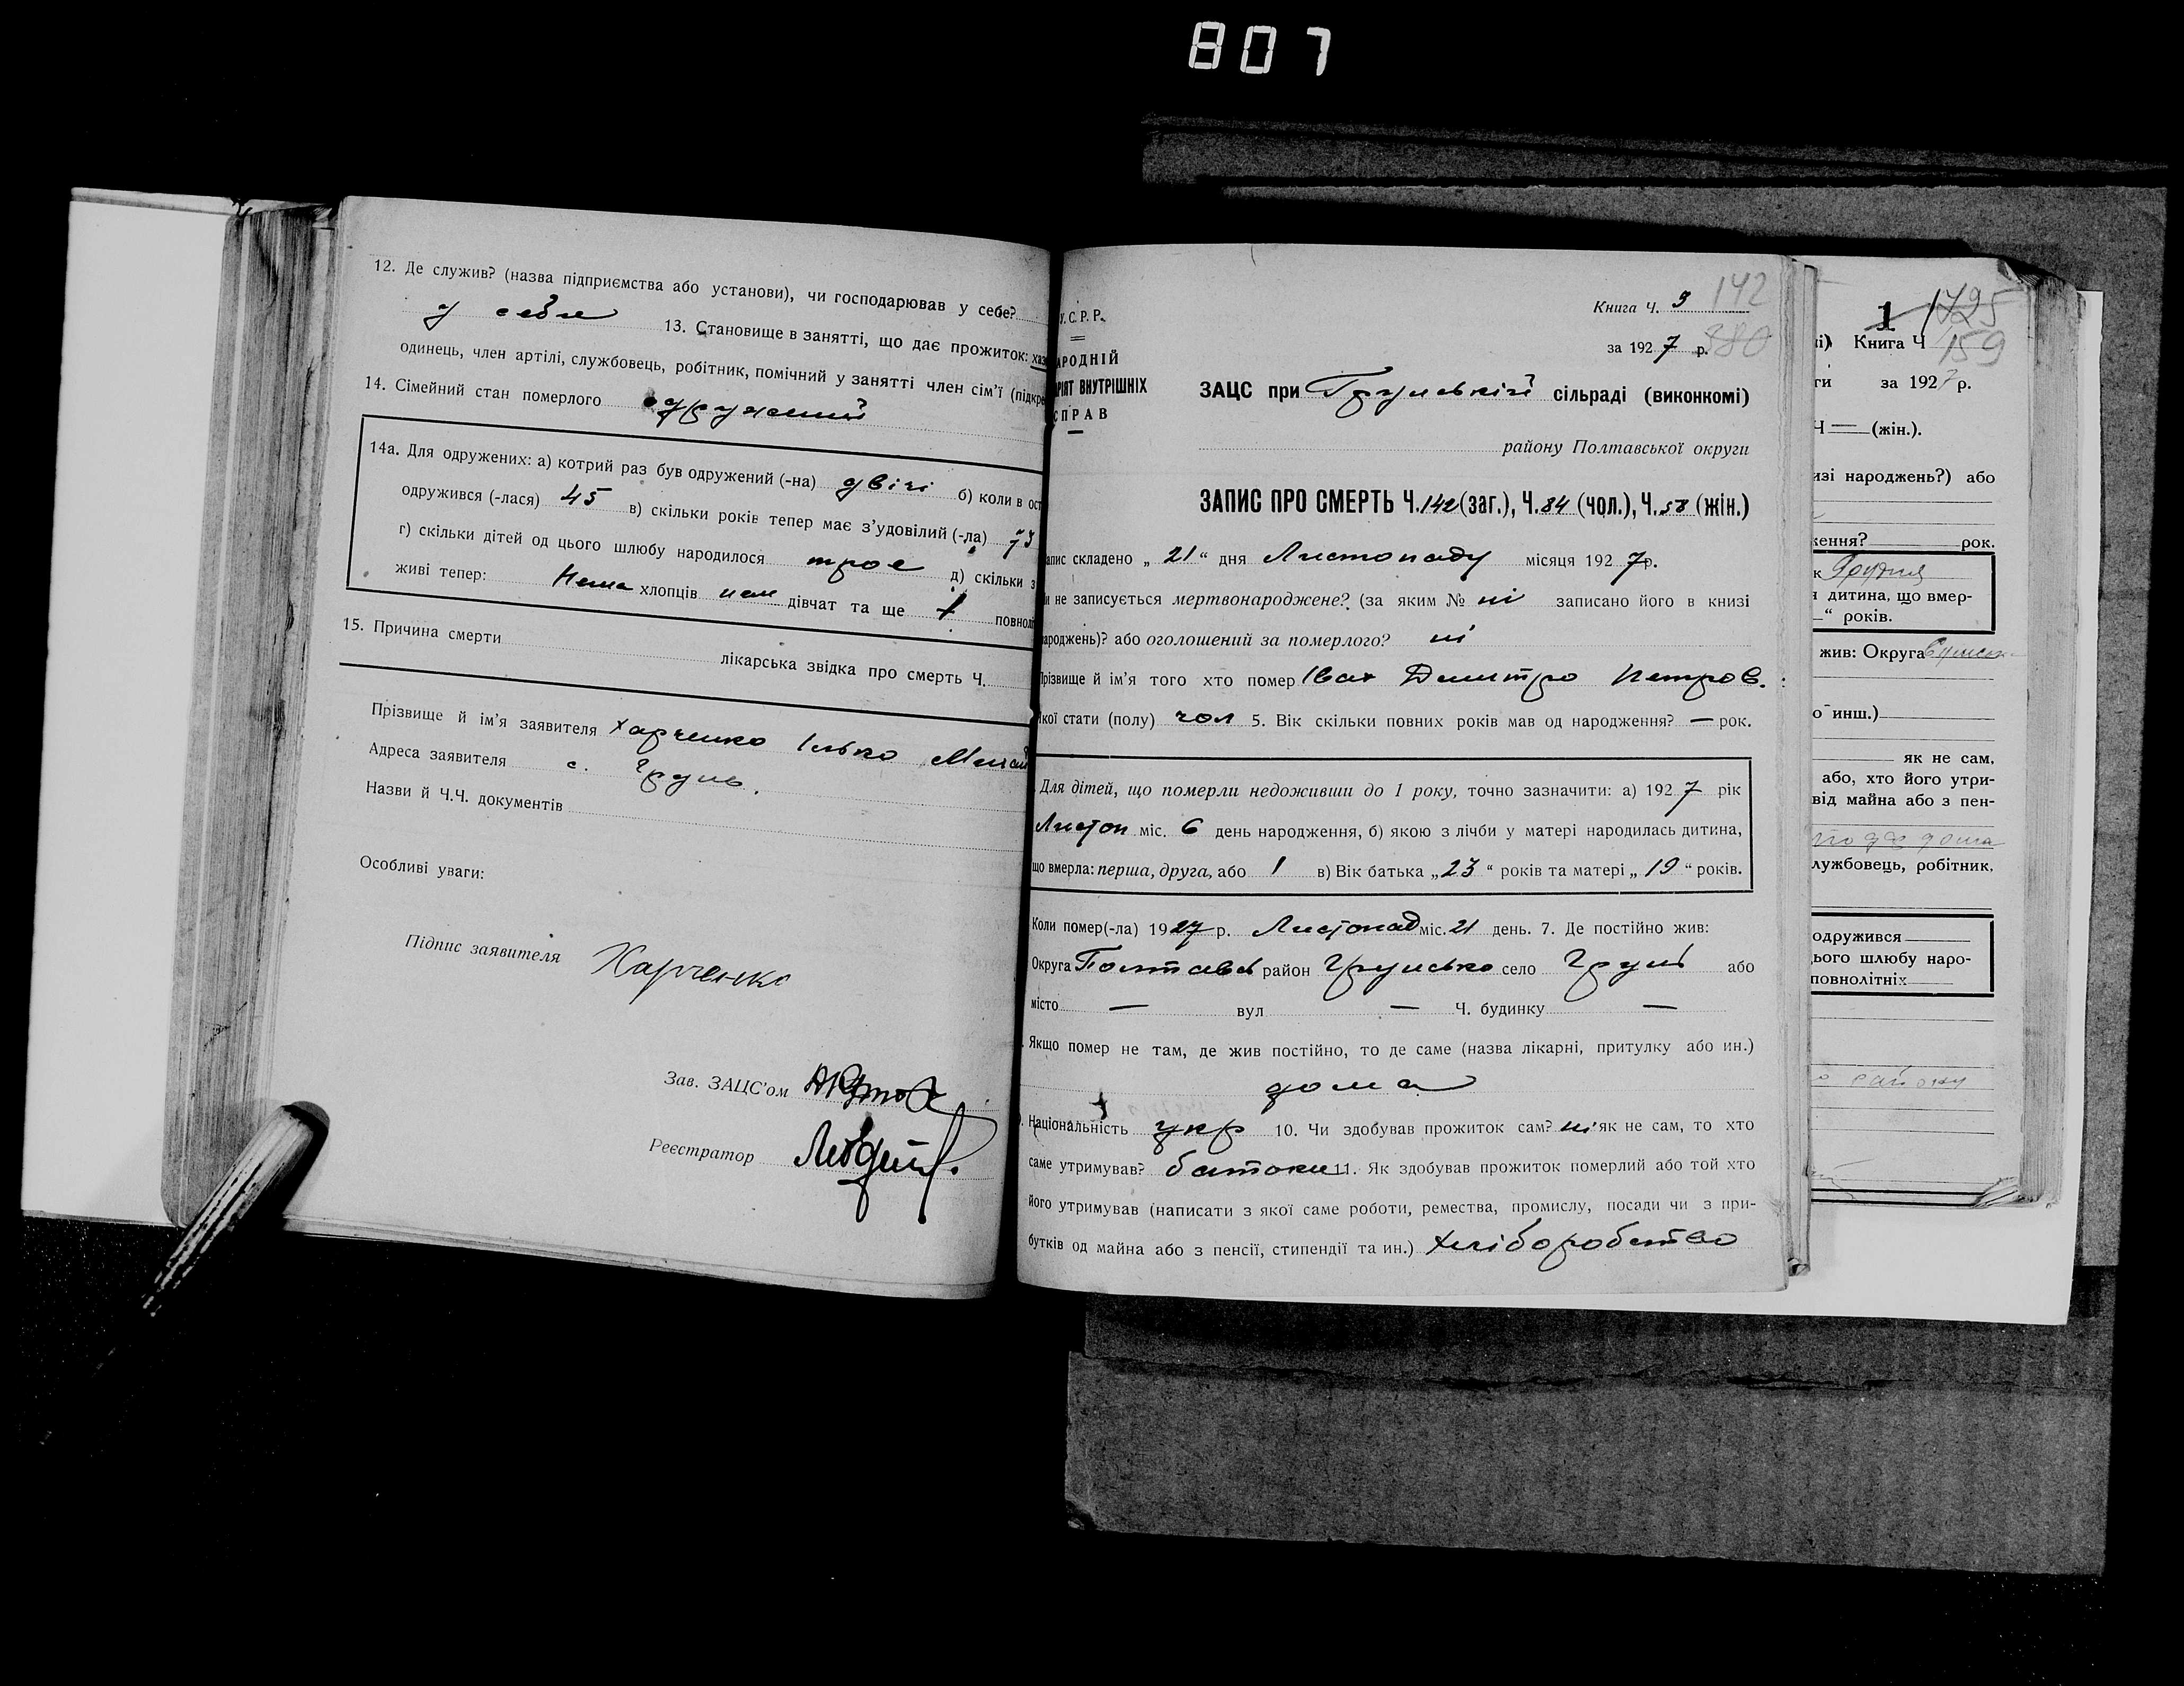 807
12. Де служив? (назва підприємства або установи), чи господарював у себе?
у себе 13. Становище в занятті, що дає прожиток: хаз
одинець, член артілі, службовець, робітник, помічний у занятті член сім'ї (підкре
14. Сімейний стан померлого одружений
14а. Для одружених: а) котрий раз був одружений (-на) двічі б) коли в ост
одружився (-лася) 45 в) скільки років тепер має з'удовілий (-ла) 73
г) скільки дітей од цього шлюбу народилося троє д) скільки з
живі тепер: Нема хлопців нем дівчат та ще повноліт
15. Причина смерти лікарська звідка про смерть Ч.
Прізвище й ім'я заявителя Харченко Ілько
Адреса заявителя с. Грунь.
Назви й Ч.Ч. документів
Особливі уваги:
Підпис заявителя Харченко
Зав. ЗАЦС'ом
Реєстратор
У.С.Р.Р.
АРОДНІЙ
РІЯТ ВНУТРІШНІХ
СПРАВ
Книга Ч. 3 142
за 1927 р. 380
ЗАЦС при Грунській сільраді (виконкомі)
району Полтавської округи
ЗАПИС ПРО СМЕРТЬ Ч. 142 (заг.), Ч. 84 (чол.), Ч. 58 (жін.)
апис складено „21“ дня Листопаду місяця 1927р.
и не записується мертвонароджене? (за яким № ні записано його в книзі
ароджень)? або оголошений за померлого? ні
Прізвище й ім'я того хто помер Івах Дмитро Петров.
якої стати (полу) чол 5. Вік скільки повних років мав од народження? — рок.
Для дітей, що померли недоживши до 1 року, точно зазначити: а) 1927 рік
Листоп міс. 6 день народження, б) якою з лічби у матері народилась дитина,
що вмерла: перша, друга, або 1 в) Вік батька „23“ років та матері „19“ років.
Коли помер(-ла) 1927 р. Листопад міс. 21 день. 7. Де постійно жив:
Округа Полтавсь район Грунсько село Грунь або
місто — вул — Ч. будинку —
Якщо помер не там, де жив постійно, то де саме (назва лікарні, притулку або ин.)
дома
Національність укр 10. Чи здобував прожиток сам? ні як не сам, то хто
саме утримував? батоки 11. Як здобував прожиток померлий або той хто
його утримував (написати з якої саме роботи, ремества, промислу, посади чи з при-
бутків од майна або з пенсії, стипендії та ин.) Хліборобство
1 1725
і) Книга Ч 159
ги за 1927 р.
Ч — (жін.).
изі народжень?) або
ження? рок.
к Друтня
дитина, що вмер-
“ років.
жив: Округа Сумськ
о инш.)
як не сам,
або, хто його утри-
від майна або з пен-
дома
лужбовець, робітник,
одружився
ього шлюбу наро-
повнолітніх